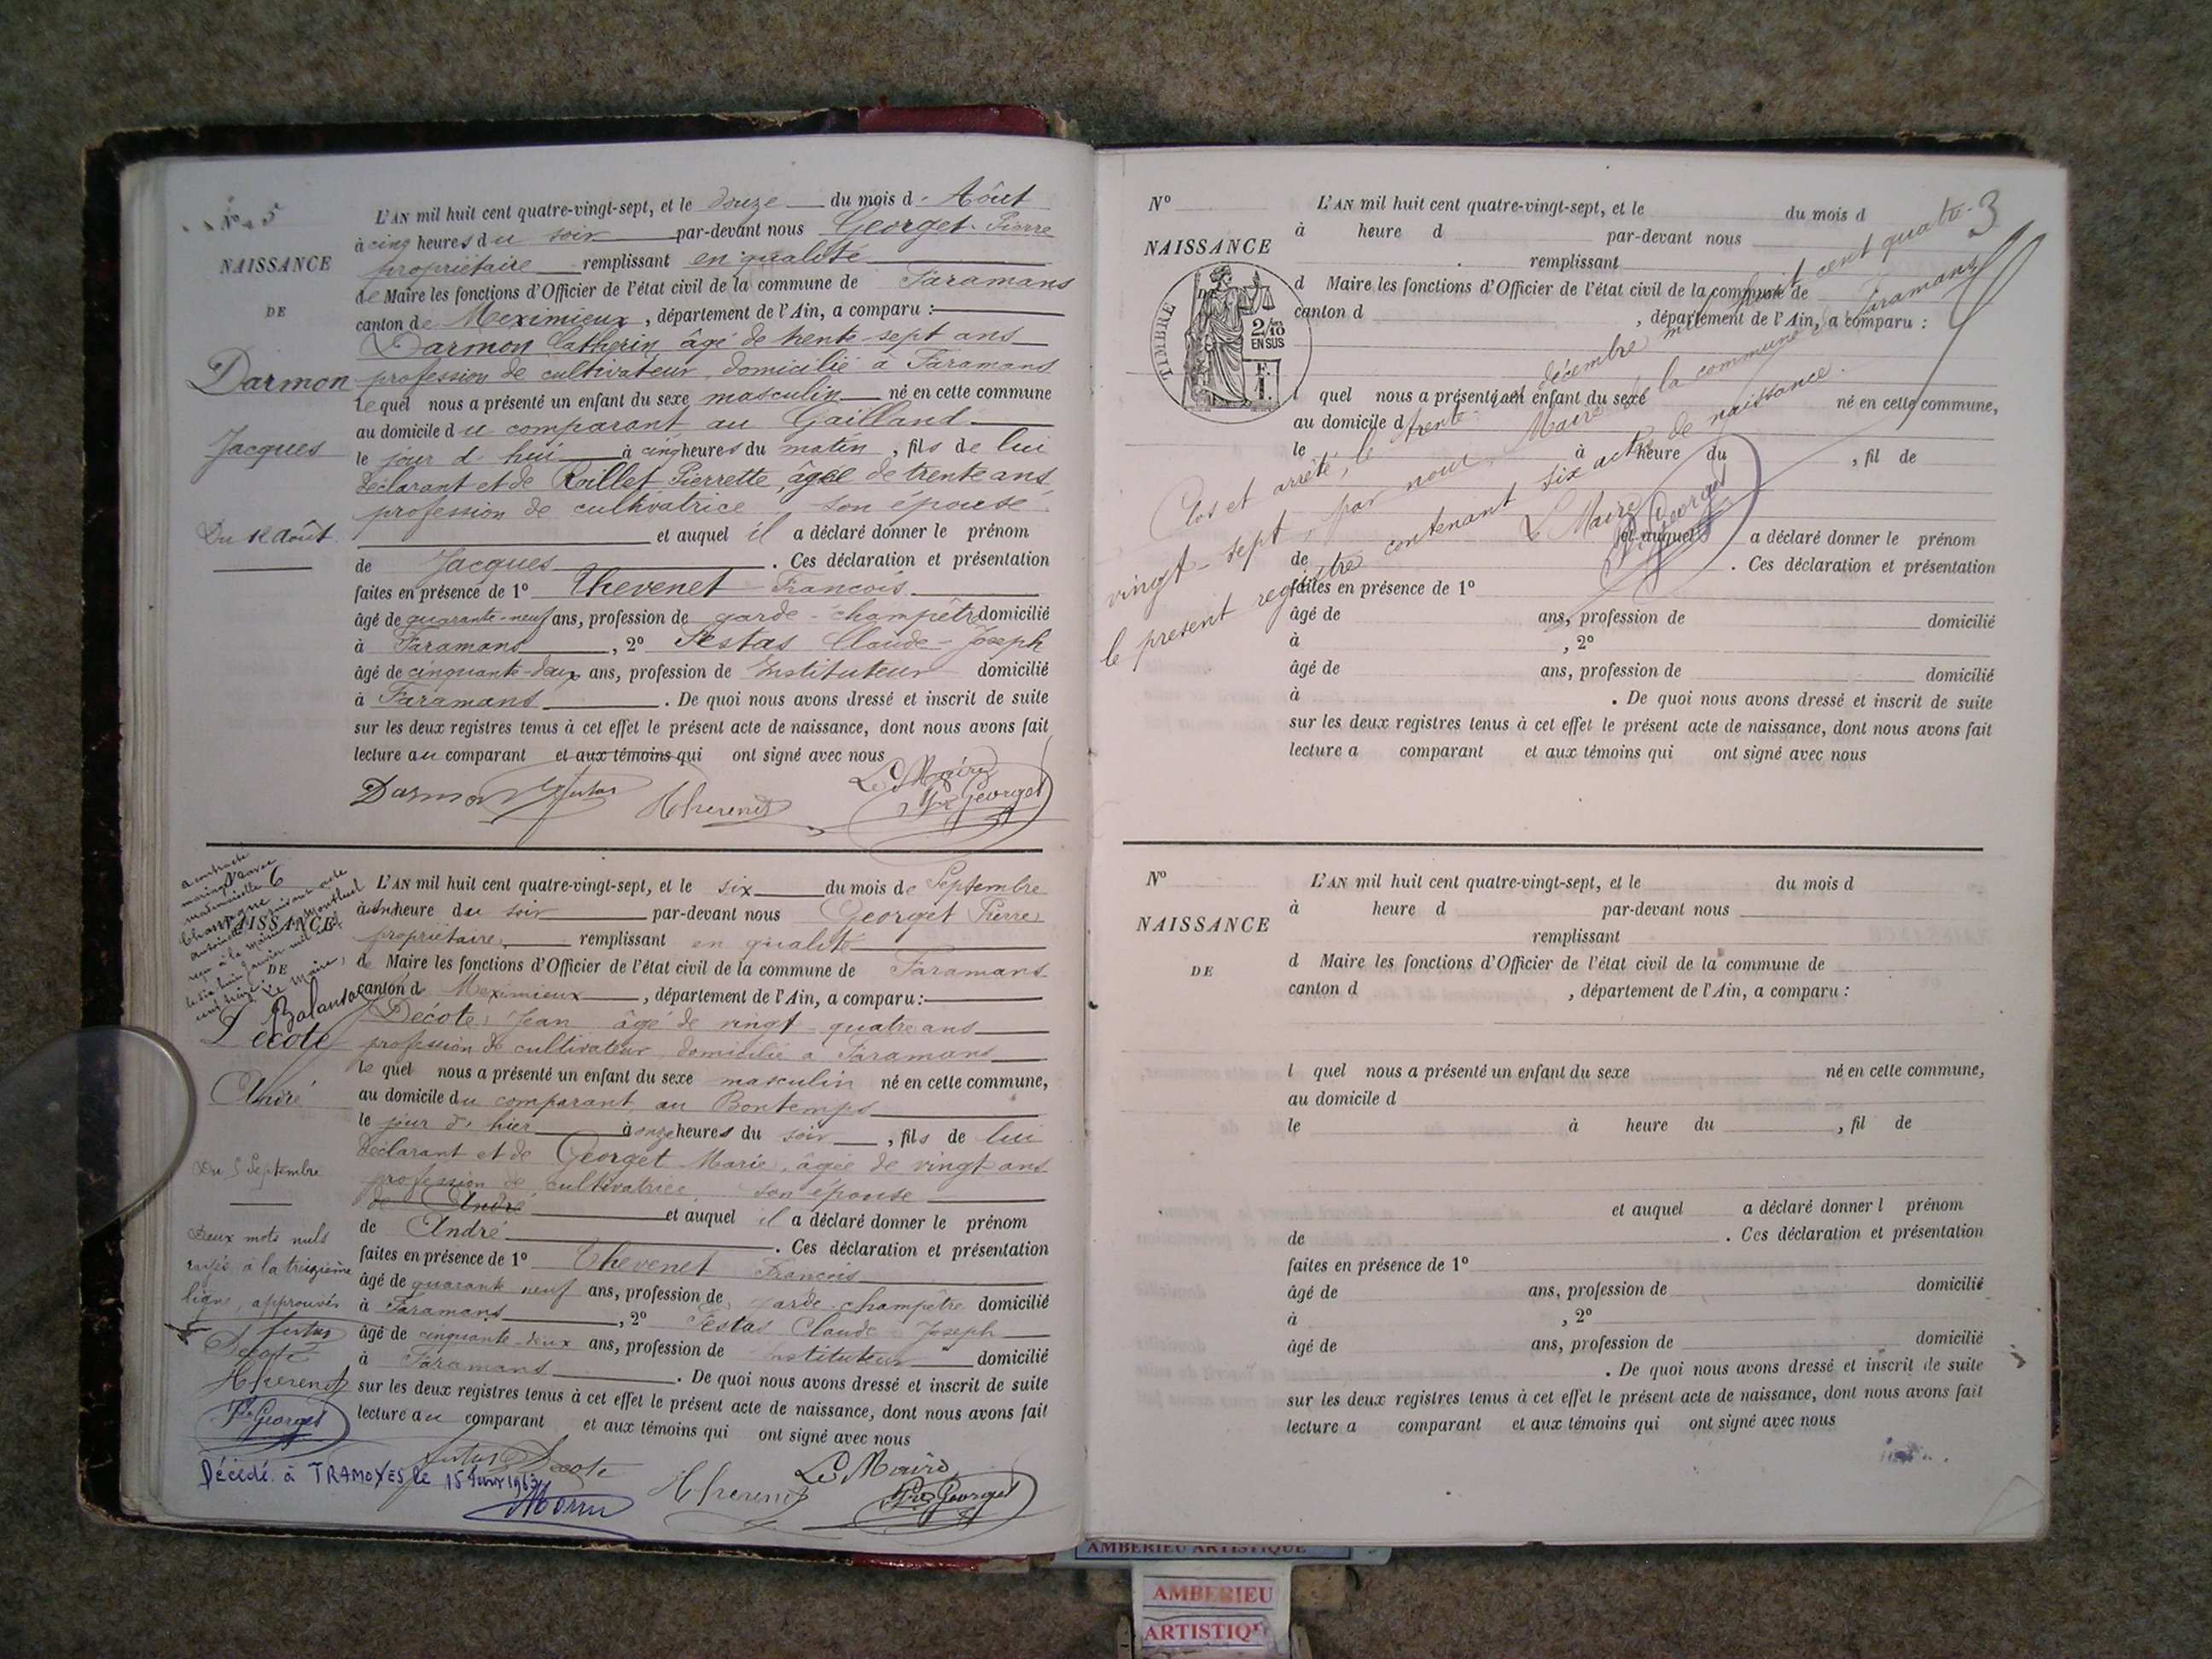 N° 5
NAISSANCE
DE
Darmon
Jacques
Du 12 Août
L'AN mil huit cent quatre-vingt-sept, et le douze du mois d'Août
à cinq heures du soir par-devant nous Georget Pierre
propriétaire remplissant en qualité
de Maire les fonctions d'Officier de l'état civil de la commune de Faramans
canton de Meximieux, département de l'Ain, a comparu :
Darmon Catherin, âgé de trente-sept ans
profession de cultivateur, domicilié à Faramans
lequel nous a présenté un enfant du sexe masculin né en cette commune
au domicile du comparant au Gailland
le jour d'hui à cinq heures du matin, fils de lui
déclarant et de Roillet Pierrette, âgée de trente ans
profession de cultivatrice, son épouse
et auquel il a déclaré donner le prénom
de Jacques. Ces déclaration et présentation
faites en présence de 1° Thevenet François
âgé de quarante-neuf ans, profession de garde-champêtre domicilié
à Faramans, 2° Festas Claude-Joseph
âgé de cinquante-deux ans, profession de Instituteur domicilié
à Faramans. De quoi nous avons dressé et inscrit de suite
sur les deux registres tenus à cet effet le présent acte de naissance, dont nous avons fait
lecture au comparant et aux témoins qui ont signé avec nous
Le Maire
Darmon Festas Thevenet Pre Georget
a contracté
mariage avec
Champagne
suivant acte
reçu à la mairie de Montluel
janvier mil neuf
cent treize.
Le Maire,
6
NAISSANCE
DE
Decote
André
Du 5 Septembre
Deux mots nuls
rayés à la treizième
ligne, approuvés
Festas
Decote
Thevenet
Pre Georget
L'AN mil huit cent quatre-vingt-sept, et le six du mois de Septembre
heure du soir par-devant nous Georget Pierre
propriétaire, remplissant en qualité
de Maire les fonctions d'Officier de l'état civil de la commune de Faramans
canton de Meximieux, département de l'Ain, a comparu :
Decote Jean âgé de vingt-quatre ans
profession de cultivateur, domicilié à Faramans
lequel nous a présenté un enfant du sexe masculin né en cette commune,
au domicile du comparant, au Bontemps
le jour d'hier à onze heures du soir, fils de lui
déclarant et de Georget Marie, âgée de vingt ans
profession de cultivatrice, son épouse
de André et auquel il a déclaré donner le prénom
de André. Ces déclaration et présentation
faites en présence de 1° Thevenet François
âgé de quarante neuf ans, profession de garde-champêtre domicilié
à Faramans, 2° Festas Claude Joseph
âgé de cinquante-deux ans, profession de Instituteur domicilié
à Faramans. De quoi nous avons dressé et inscrit de suite
sur les deux registres tenus à cet effet le présent acte de naissance, dont nous avons fait
lecture au comparant et aux témoins qui ont signé avec nous
Festas Decote Thevenet Le Maire
Pre Georget
Décédé à TRAMOYES le 15
N°
NAISSANCE
TIMBRE
2/10
EN SUS
L'AN mil huit cent quatre-vingt-sept, et le du mois d
à heure d par-devant nous
remplissant
d Maire les fonctions d'Officier de l'état civil de la commune de
canton d , département de l'Ain, a comparu :
l quel nous a présenté un enfant du sexe né en cette commune,
au domicile d
le à heure du , fil de
et auquel a déclaré donner le prénom
de . Ces déclaration et présentation
faites en présence de 1°
âgé de ans, profession de domicilié
à , 2°
âgé de ans, profession de domicilié
à . De quoi nous avons dressé et inscrit de suite
sur les deux registres tenus à cet effet le présent acte de naissance, dont nous avons fait
lecture a comparant et aux témoins qui ont signé avec nous
3
Clos et arrêté, le trente-un décembre mil huit cent quatre-
vingt-sept, par nous, Maire de la commune de Faramans
le présent registre contenant six actes de naissance.
Le Maire
Pre Georget
N°
NAISSANCE
DE
L'AN mil huit cent quatre-vingt-sept, et le du mois d
à heure d par-devant nous
remplissant
d Maire les fonctions d'Officier de l'état civil de la commune de
canton d , département de l'Ain, a comparu :
l quel nous a présenté un enfant du sexe né en cette commune,
au domicile d
le à heure du , fil de
et auquel a déclaré donner l prénom
de . Ces déclaration et présentation
faites en présence de 1°
âgé de ans, profession de domicilié
à , 2°
âgé de ans, profession de domicilié
. De quoi nous avons dressé et inscrit de suite
sur les deux registres tenus à cet effet le présent acte de naissance, dont nous avons fait
lecture a comparant et aux témoins qui ont signé avec nous
AMBERIEU ARTISTIQUE
AMBERIEU
ARTISTIQU